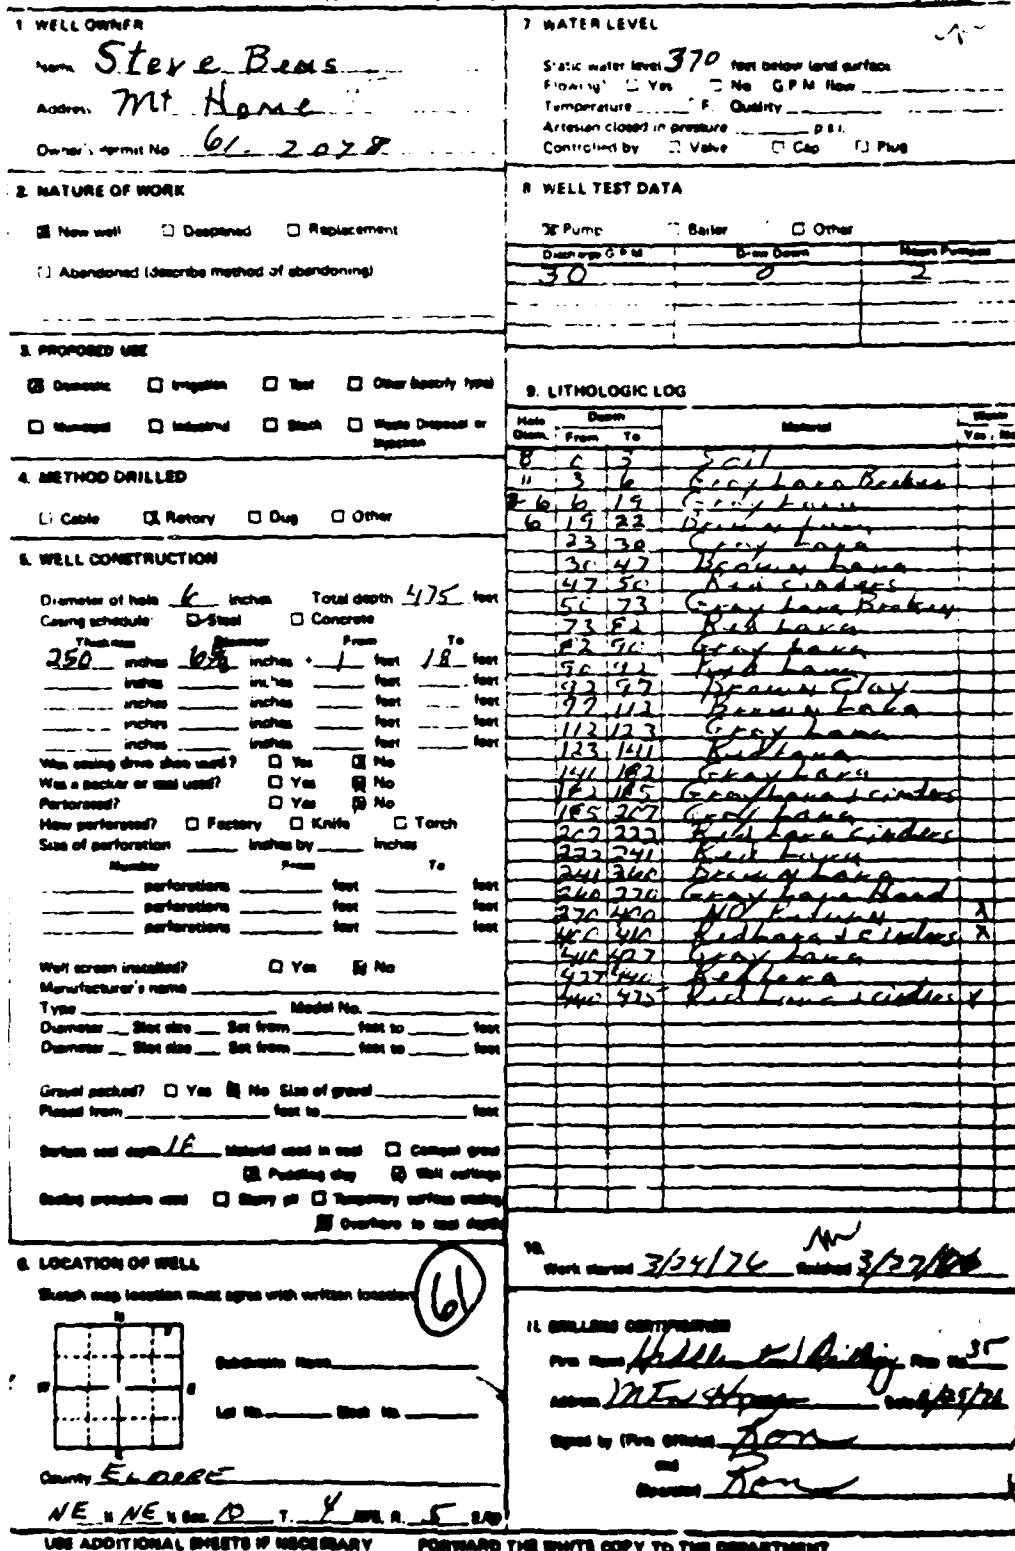 1 WELL OWNER
Name Steve Beus
Address Mt Home
Owner's Permit No 61-2078
2. NATURE OF WORK
New well Deepened Replacement
Abandoned (describe method of abandoning)
3. PROPOSED USE
Domestic Irrigation Test Other (specify type)
Municipal Industrial Stock Waste Disposal or Injection
4. METHOD DRILLED
Cable Rotary Dug Other
5. WELL CONSTRUCTION
Diameter of hole 6 inches Total depth 475 feet
Casing schedule: Steel Concrete
Thickness Diameter From To
250 inches 6 5/8 inches + 1 feet 18 feet
inches inches feet feet
inches inches feet feet
inches inches feet feet
inches inches feet feet
Was casing drive shoe used? Yes No
Was a packer or seal used? Yes No
Perforated? Yes No
How perforated? Factory Knife Torch
Size of perforation inches by inches
Number From To
perforations feet feet
perforations feet feet
perforations feet feet
Well screen installed? Yes No
Manufacturer's name
Type Model No.
Diameter Slot size Set from feet to feet
Diameter Slot size Set from feet to feet
Gravel packed? Yes No Size of gravel
Placed from feet to feet
Surface seal depth 18 Material used in seal Cement grout
Puddling clay Well cuttings
Sealing procedure used Slurry pit Temporary surface casing
Overbore to seal depth
6. LOCATION OF WELL
Sketch map location must agree with written location
61
N
W E
S
Subdivision Name
Lot No. Block No.
County ELMORE
NE ¼ NE ¼ Sec. 10 T. 4 R. 5
7 WATER LEVEL
Static water level 370 feet below land surface
Flowing? Yes No G.P.M. flow
Temperature F. Quality
Artesian closed in pressure p.s.i.
Controlled by Valve Cap Plug
8 WELL TEST DATA
Pump Bailer Other
Discharge G.P.M. Draw Down Hours Pumped
30 0 2
9. LITHOLOGIC LOG
Hole Diam. Depth Material Water
From To Yes No
8 0 3 Soil
" 3 6 Gray Lava Broken
8-6 6 19 Gray Lava
6 19 22 Brown Lava
23 30 Gray Lava
30 47 Brown Lava
47 50 Red Cinders
50 73 Gray Lava Broken
73 82 Red Lava
82 90 Gray Lava
90 92 Red Lava
92 97 Brown Clay
97 112 Brown Lava
112 123 Gray Lava
123 141 Red Lava
141 182 Gray Lava
182 185 Gray Lava & cinders
185 207 Gray Lava
207 222 Red Lava cinders
222 241 Red Lava
241 260 Brown Lava
260 270 Gray Lava Hard
270 400 NO Return X
400 410 Red Lava & Cinders X
410 427 Gray Lava
427 440 Red Lava
440 475 Red Lava & cinders X
10. Work started 3/24/76 finished 3/27/76
11. DRILLERS CERTIFICATION
Firm Name Drilling Firm No. 35
Address Mtn Home Date
Signed by (Firm Official) Ron
and
(Operator) Ron
USE ADDITIONAL SHEETS IF NECESSARY FORWARD THE WHITE COPY TO THE DEPARTMENT